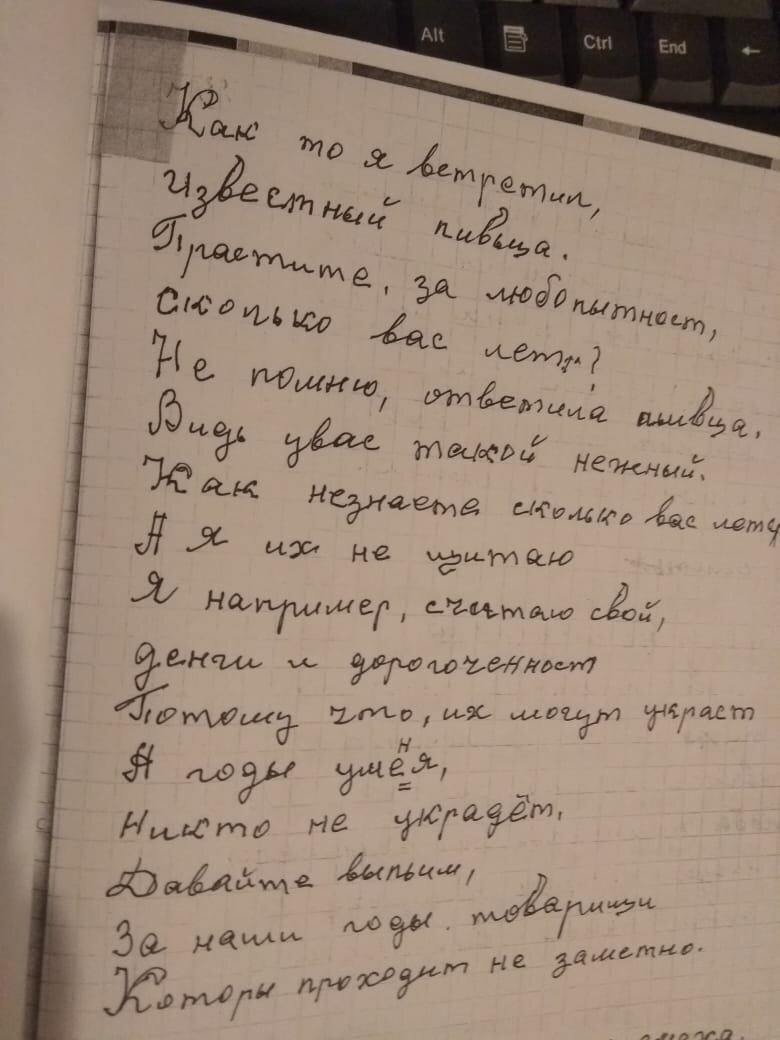 Alt
Ctrl
End
←
Как то я встретил,
известный пивыца.
Прастите, за любопытност,
сколько вас лет?
Не помню, ответила пивца.
Видь увас такой нежный.
Как незнаете сколько вас лету
А я их не щитаю
Я например, считаю свой,
денги и дорогоченност
Потому что, их могут украст
А годы уменя,
Никто не украдёт.
Давайте выпьим,
За наши годы. товарищи
Которы проходит не заметно.